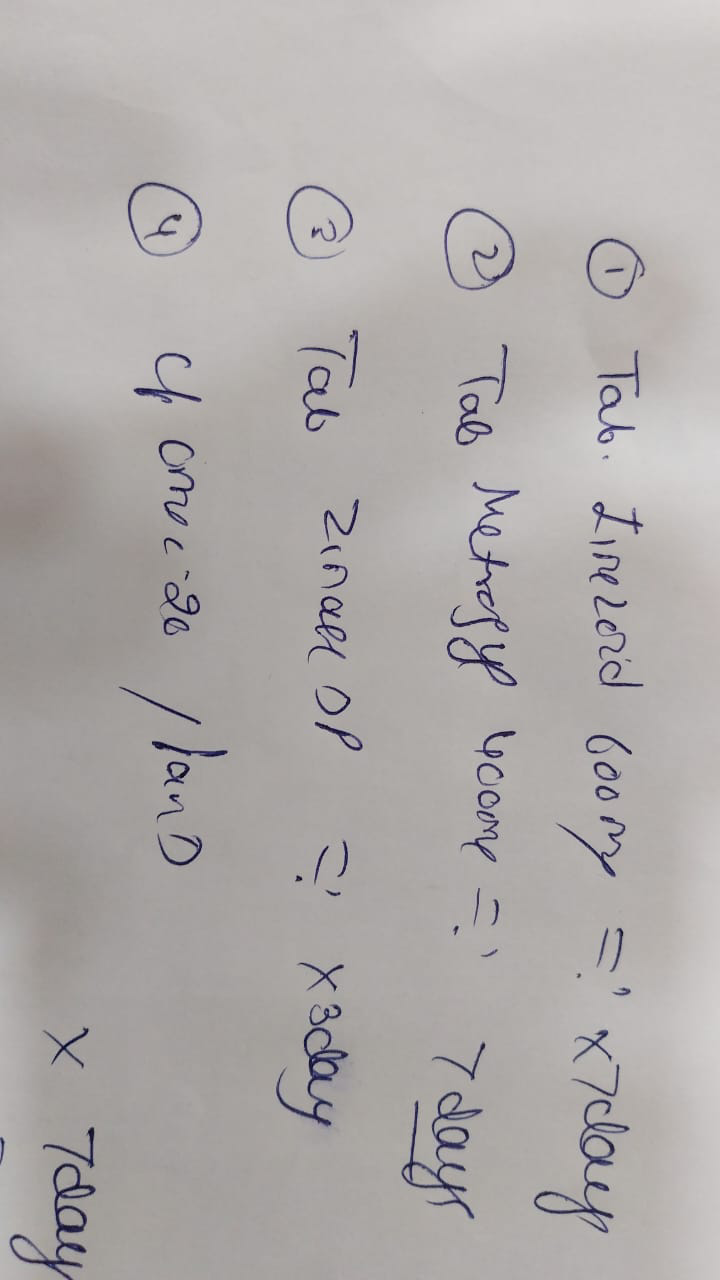 ① Tab. Linezoid 600mg =!' x7days
② Tab Metrogyl 400mg =!' 7days
③ Tab DP =!' x3day
④ Omec-20 / Pan D
x 7day